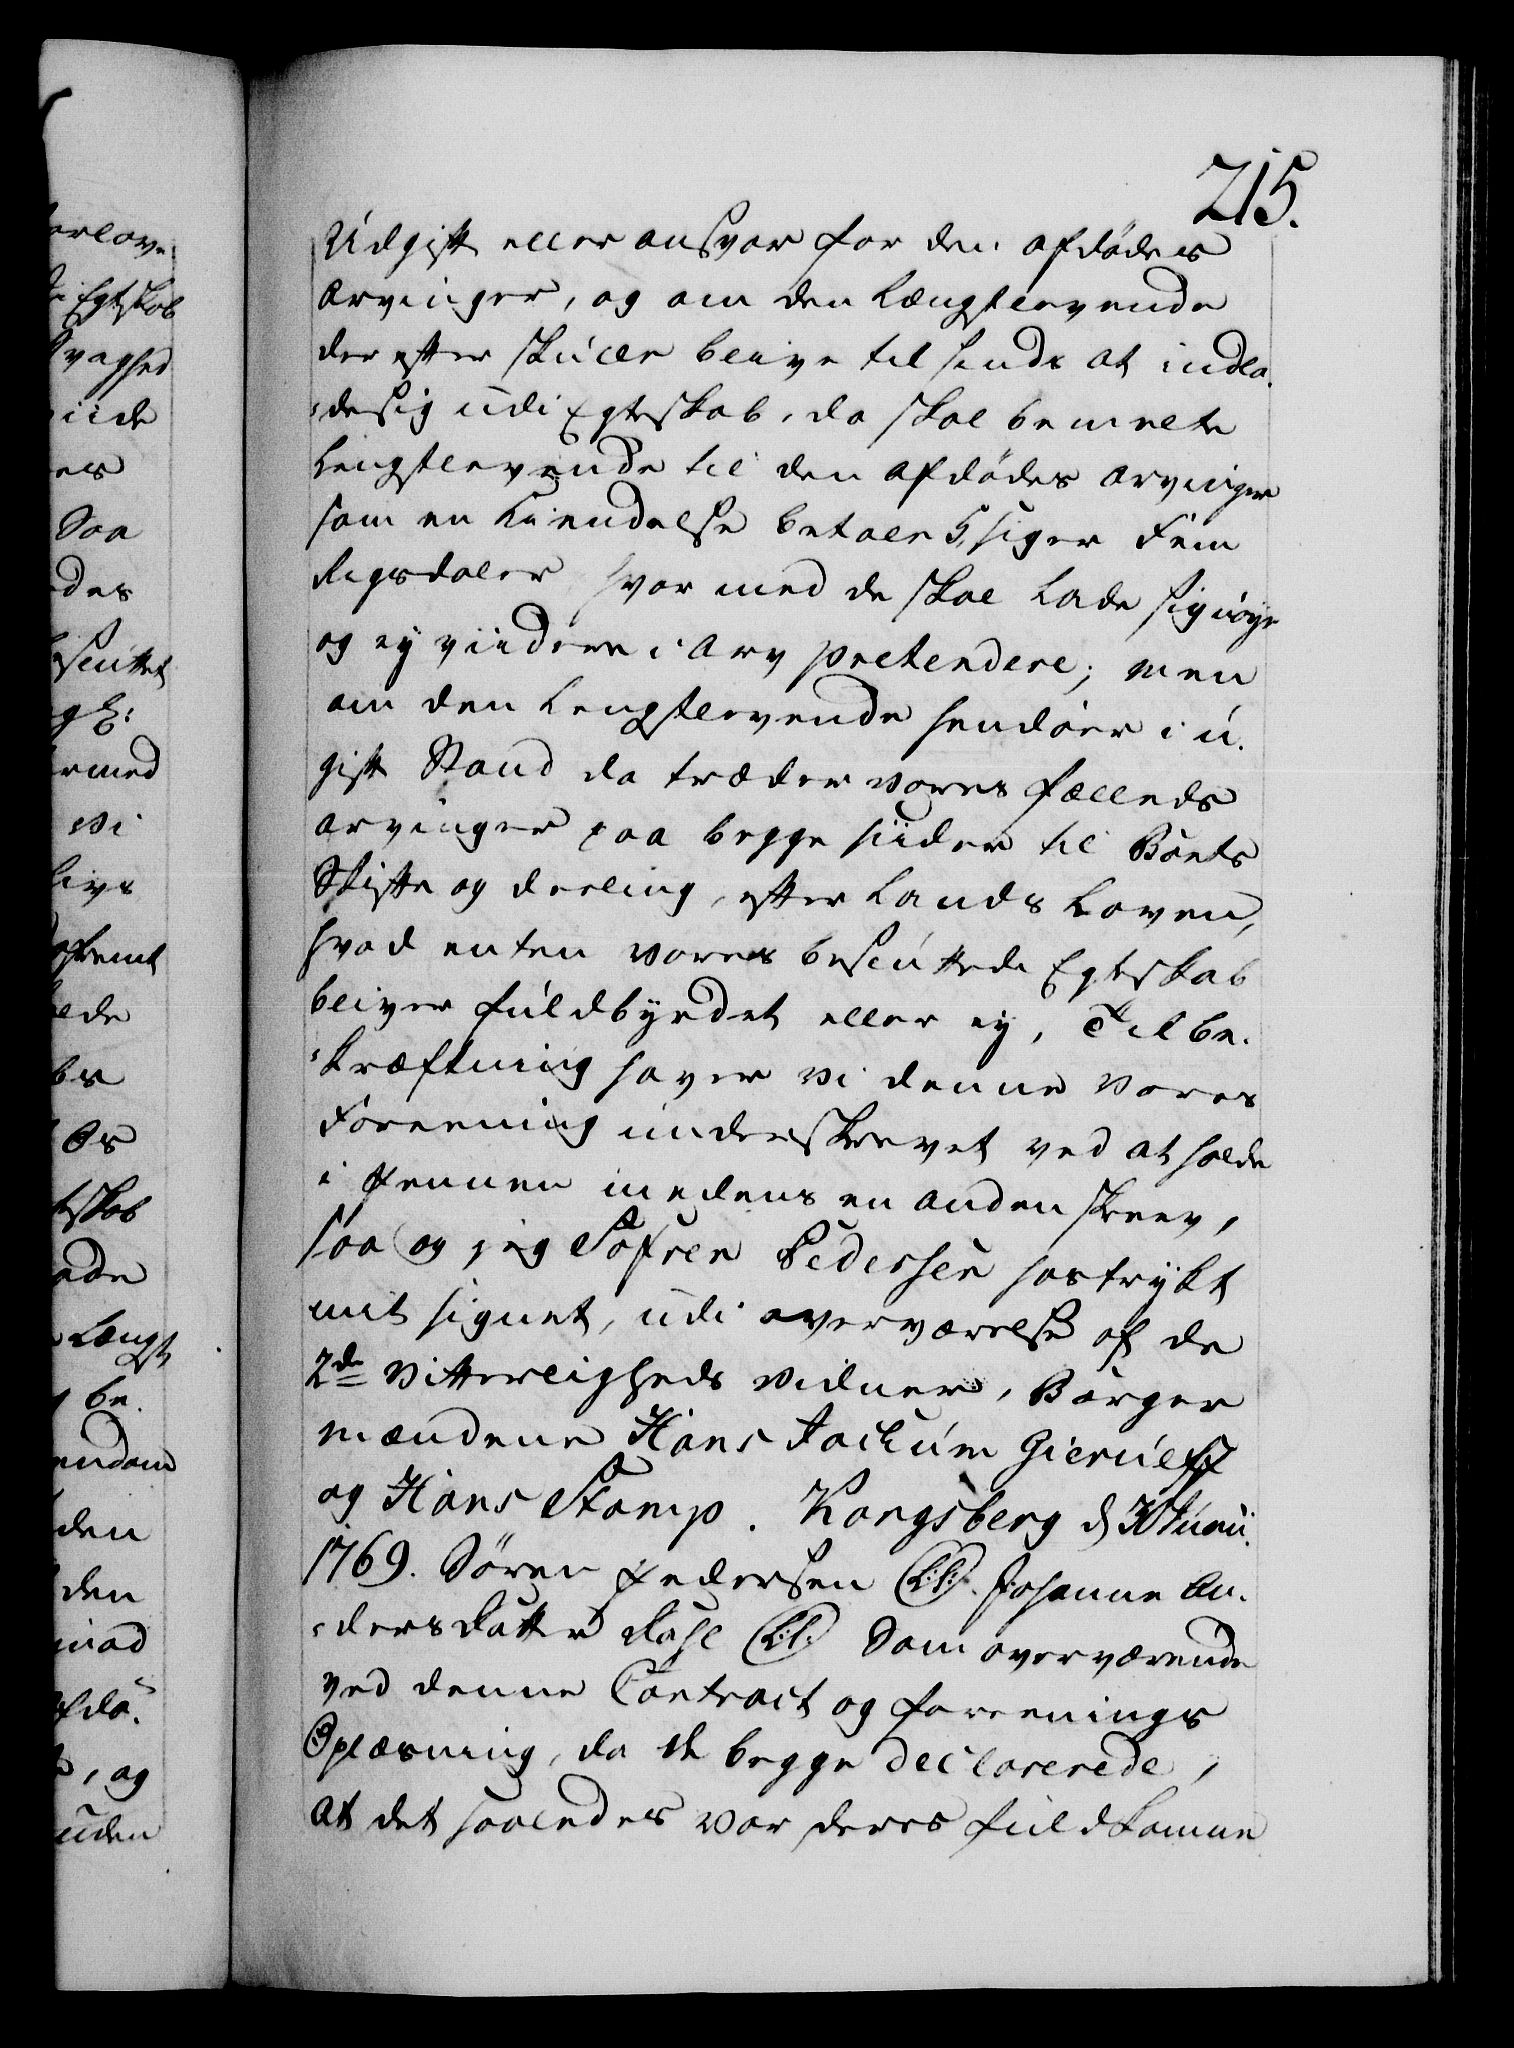 215.
Udgift eller ansvar for den afdødes
arvinger, og om den Længstlevende
der efter skulle blive til sinds at indla-
desig udi Egteskab, da skal bemelte
Lengstlevende til den afdødes arvinger
som en Kiendelse betale 5, siger Fem
Rigsdaler hvor med de skal Lade sig nøye
og ey viidere i Arv pretendere; men
om den Lengstlevende hendøer i u-
gift Stand da træder vores fælleds
arvinger paa begge siider til Boets
Skifte og deeling, efter Lands Loven,
hvad enten vores besluttede Egteskab
bliver fuldbyrdet eller ey, Til be-
kræftning haver vi denne vores
Foreening underskrevet ved at holde
i Pennen medens en anden skreev,
saa og jeg Søfren Pedersen hostrykt
mit signet, udi overværelse af de
2de Vitterligheds vidner, Borger
mændene Hans Jochum Gierulff
og Hans Stamp. Kongsberg d Junii
1769. Søren Pedersen (L.S.). Johanne An-
dersdatter Rose (L.S.) Som overværende
ved denne Contract og foreenings
Oplæsning, da de begge declarerede,
at det saaledes var deres fuldkomne